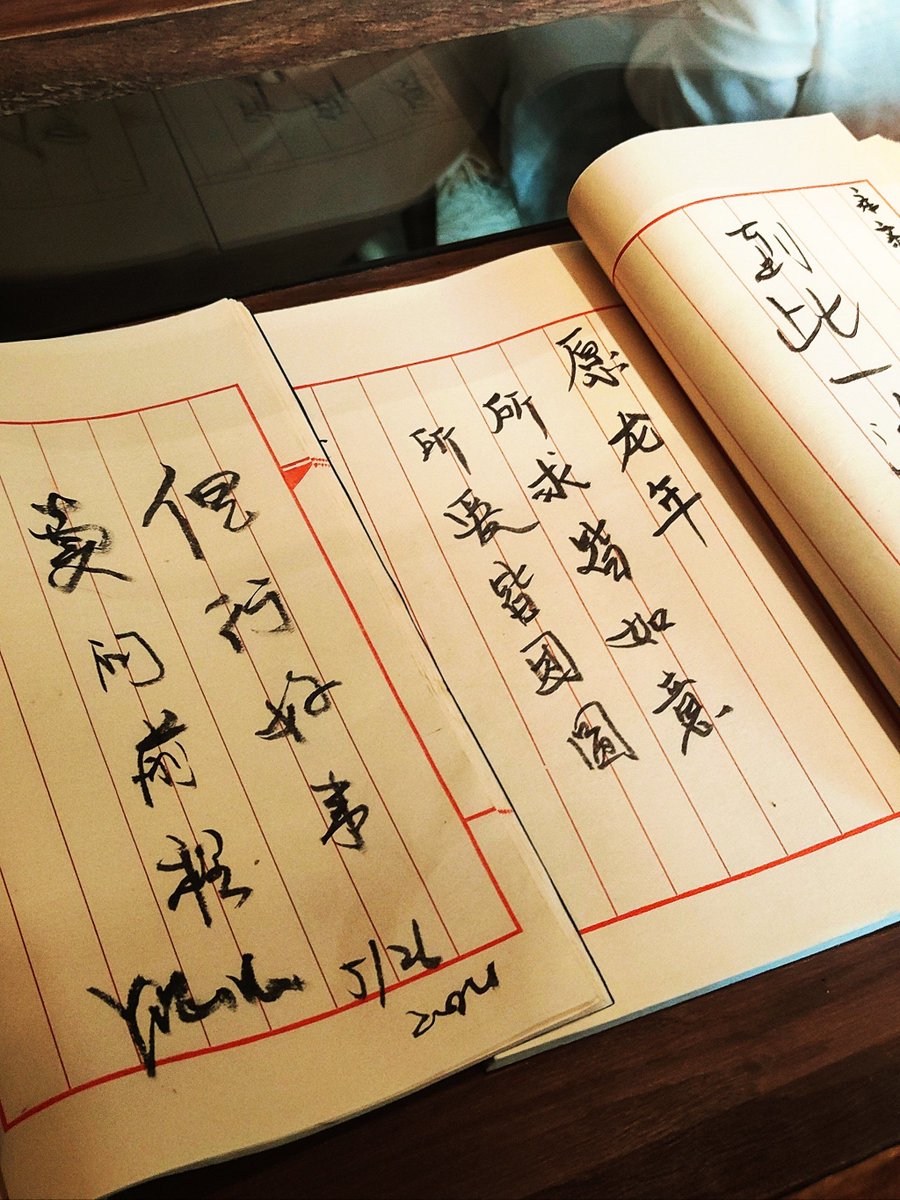 到此一
愿龙年
所求皆如意
所爱皆团圆
但行好事
莫问前程
5/26
2024